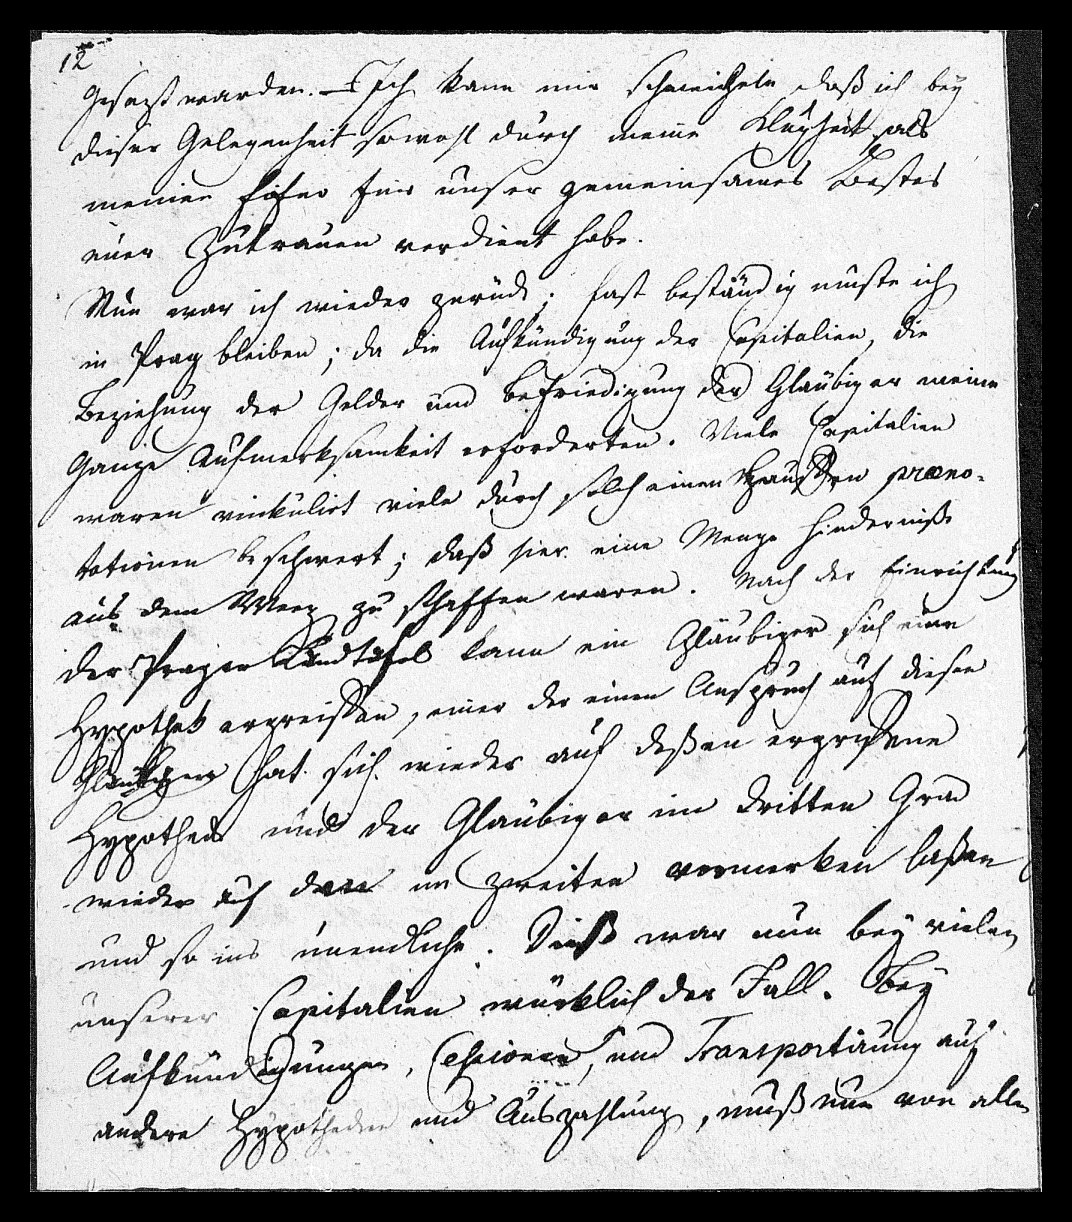 12
gesezt warden. – Ich kann mir schmeicheln daß ich bey
dieser Gelegenheit sowohl durch meine Klugheit als
meinen Eifer für unser gemeinsames Bestes
euer Zutrauen verdient habe.
Nun war ich wieder zurück; fast beständig muste ich
in Prag bleiben; da die Aufkündigung der Capitalien, die
Beziehung der Gelder und Befriedigung der Gläubiger meine
ganze Aufmerksamkeit erforderten. Viele Capitalien
waren vinkulirt viele durch solch einen Hauffen præno-
tationen beschwert; daß hier eine Menge Hinderniße
aus dem Weeg zu schaffen waren. Nach der Einrichtung
der Prager Landtafel kann ein Gläubiger sich eine
Hypothek ergreiffen, einer der einen Anspruch auf diesen
Gläubiger hat sich wieder auf deßen ergriffene
Hypotheck und der Gläubiger im dritten Grad
wieder auf den im zweiten vormerken laßen
und so ins unendliche. Dieß war nun bey vielen
unserer Capitalien würklich der Fall. Bey
Aufkündigungen, Cessionen, und Transportirung auf
andere Hypothecken und Auszahlung, muß nun von allen